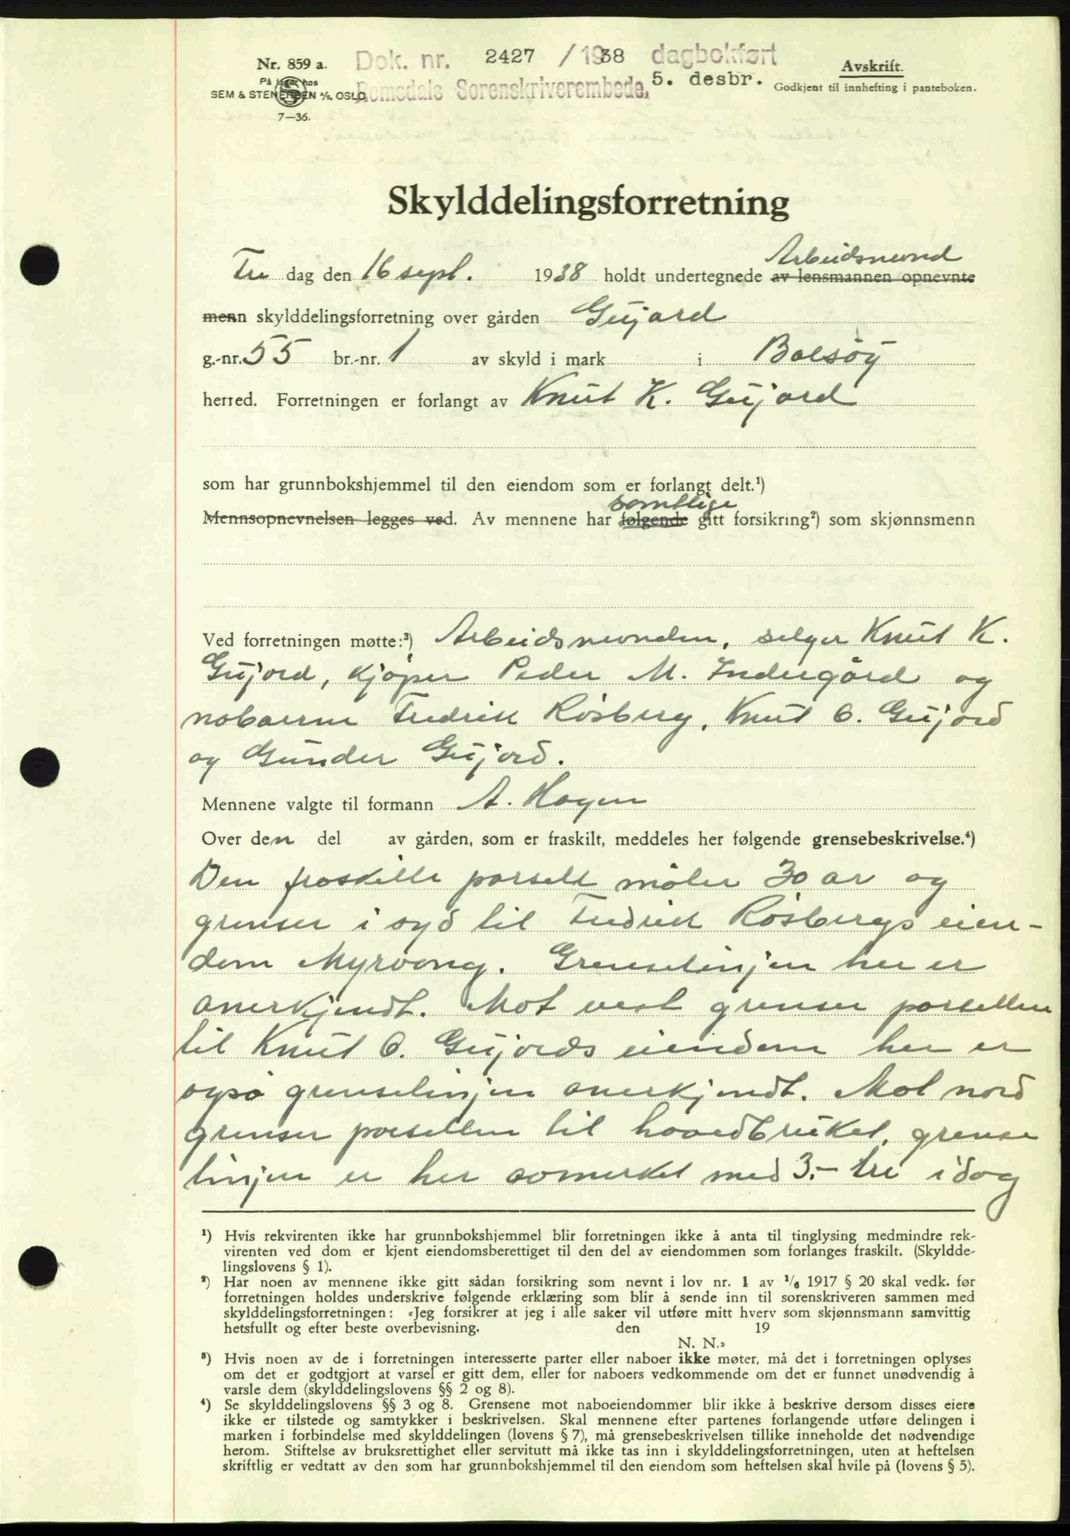 Nr. 859 a.
På lager hos
SEM & STENERSEN A/S. OSLO
7—36.
Dok. nr. 2427 / 1938 dagbokført
Romsdals Sorenskriverembede. 5. desbr.
Avskrift.
Godkjent til innhefting i panteboken.
Skylddelingsforretning
Fre dag den 16 sept. 1938 holdt undertegnede av lensmannen opnevnte Arbeidsnevnd
menn skylddelingsforretning over gården Gujord
g.-nr. 55 br.-nr. 1 av skyld i mark i Bolsøy
herred. Forretningen er forlangt av Knut K. Gujord
som har grunnbokshjemmel til den eiendom som er forlangt delt.¹)
samtlige
Mennsopnevnelsen legges ved. Av mennene har følgende gitt forsikring²) som skjønnsmenn
Ved forretningen møtte:³) Arbeidsnevnden, selger Knut K.
Gujord, kjøper Peder M. Indergård og
naboerne Fredrik Røsberg, Knut O. Gujord
og Gunder Gujord.
Mennene valgte til formann A. Hagen
Over den del av gården, som er fraskilt, meddeles her følgende grensebeskrivelse.⁴)
Den fraskilte parsell måler 30 ar og
grenser i syd til Fredrik Røsbergs eien-
dom Myrvang. Grenselinjen her er
anerkjendt. Mot vest grenser parsellen
til Knut O. Gujords eiendom her er
også grenselinjen anerkjendt. Mot nord
grenser parsellen til hovedbruket, grense
linjen er her avmerket med 3.- tre idag
¹) Hvis rekvirenten ikke har grunnbokshjemmel blir forretningen ikke å anta til tinglysing medmindre rek-
virenten ved dom er kjent eiendomsberettiget til den del av eiendommen som forlanges fraskilt. (Skyldde-
lingslovens § 1).
²) Har noen av mennene ikke gitt sådan forsikring som nevnt i lov nr. 1 av ¹/₆ 1917 § 20 skal vedk. før
forretningen holdes underskrive følgende erklæring som blir å sende inn til sorenskriveren sammen med
skylddelingsforretningen: «Jeg forsikrer at jeg i alle saker vil utføre mitt hverv som skjønnsmann samvittig
hetsfullt og efter beste overbevisning. den 19
N. N.»
³) Hvis noen av de i forretningen interesserte parter eller naboer ikke møter, må det i forretningen oplyses
om det er godtgjort at varsel er gitt dem, eller for naboers vedkommende om det er funnet unødvendig å
varsle dem (skylddelingslovens §§ 2 og 8).
⁴) Se skylddelingslovens §§ 3 og 8. Grensene mot naboeiendommer blir ikke å beskrive dersom disses eiere
ikke er tilstede og samtykker i beskrivelsen. Skal mennene efter partenes forlangende utføre delingen i
marken i forbindelse med skylddelingen (lovens § 7), må grensebeskrivelsen tillike inneholde det nødvendige
herom. Stiftelse av bruksrettighet eller servitutt må ikke tas inn i skylddelingsforretningen, uten at heftelsen
skriftlig er vedtatt av den som har grunnbokshjemmel til den eiendom som heftelsen skal hvile på (lovens § 5).